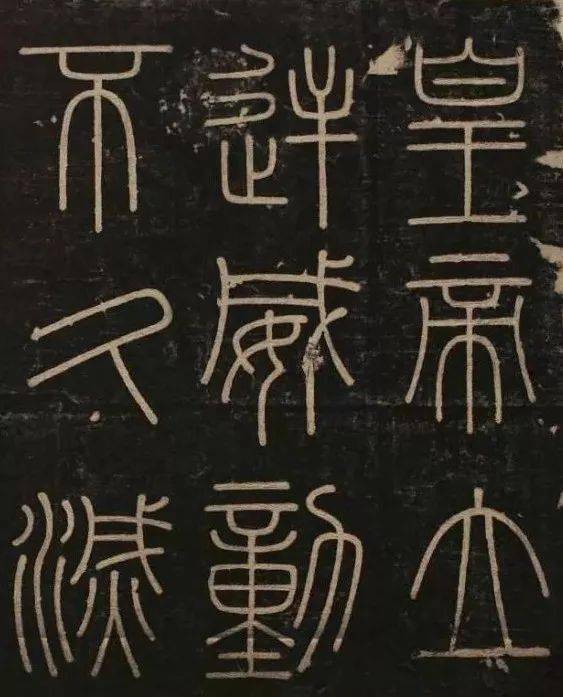 皇帝立
逆威動
不久滅